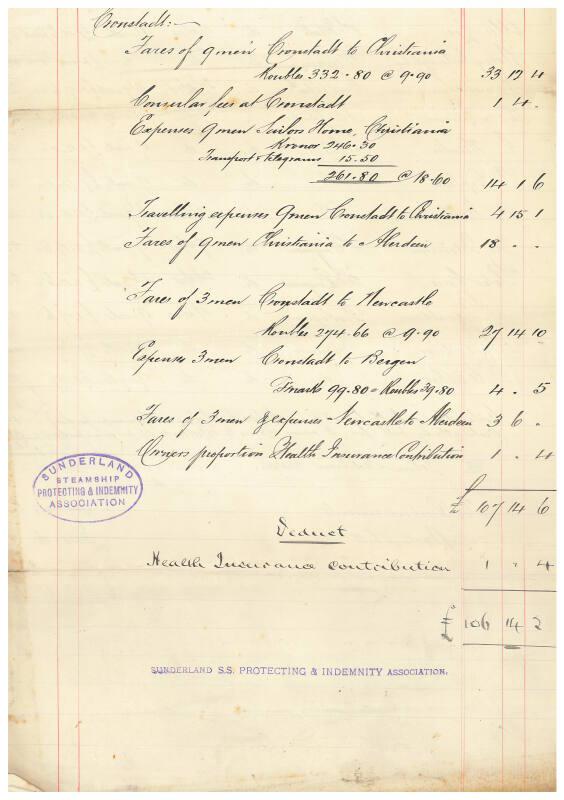 Cronstadt:-
Fares of 9 men Cronstadt to Christiania
Roubles 332.80 @ 9.90 33 12 4
Consular fees at Cronstadt 1 4 .
Expenses 9 men Sailors Home, Christiania
Kronor 246.30
Transport & telegrams 15.50
261.80 @ 18.60 14 1 6
Travelling expenses 9 men Cronstadt to Christiania 4 15 1
Fares of 9 men Christiania to Aberdeen 18 . .
Fares of 3 men Cronstadt to Newcastle
Roubles 274.66 @ 9.90 27 14 10
Expenses 3 men Cronstadt to Bergen
Fmarks 99.80 = Roubles 39.80 4 . 5
Fares of 3 men & expenses - Newcastle to Aberdeen 3 6 .
Owners proportion Health Insurance Contribution 1 . 4
SUNDERLAND
STEAMSHIP
PROTECTING & INDEMNITY
ASSOCIATION
£ 107 14 6
Deduct
Health Insurance contribution 1 . 4
£ 106 14 2
SUNDERLAND S.S. PROTECTING & INDEMNITY ASSOCIATION.